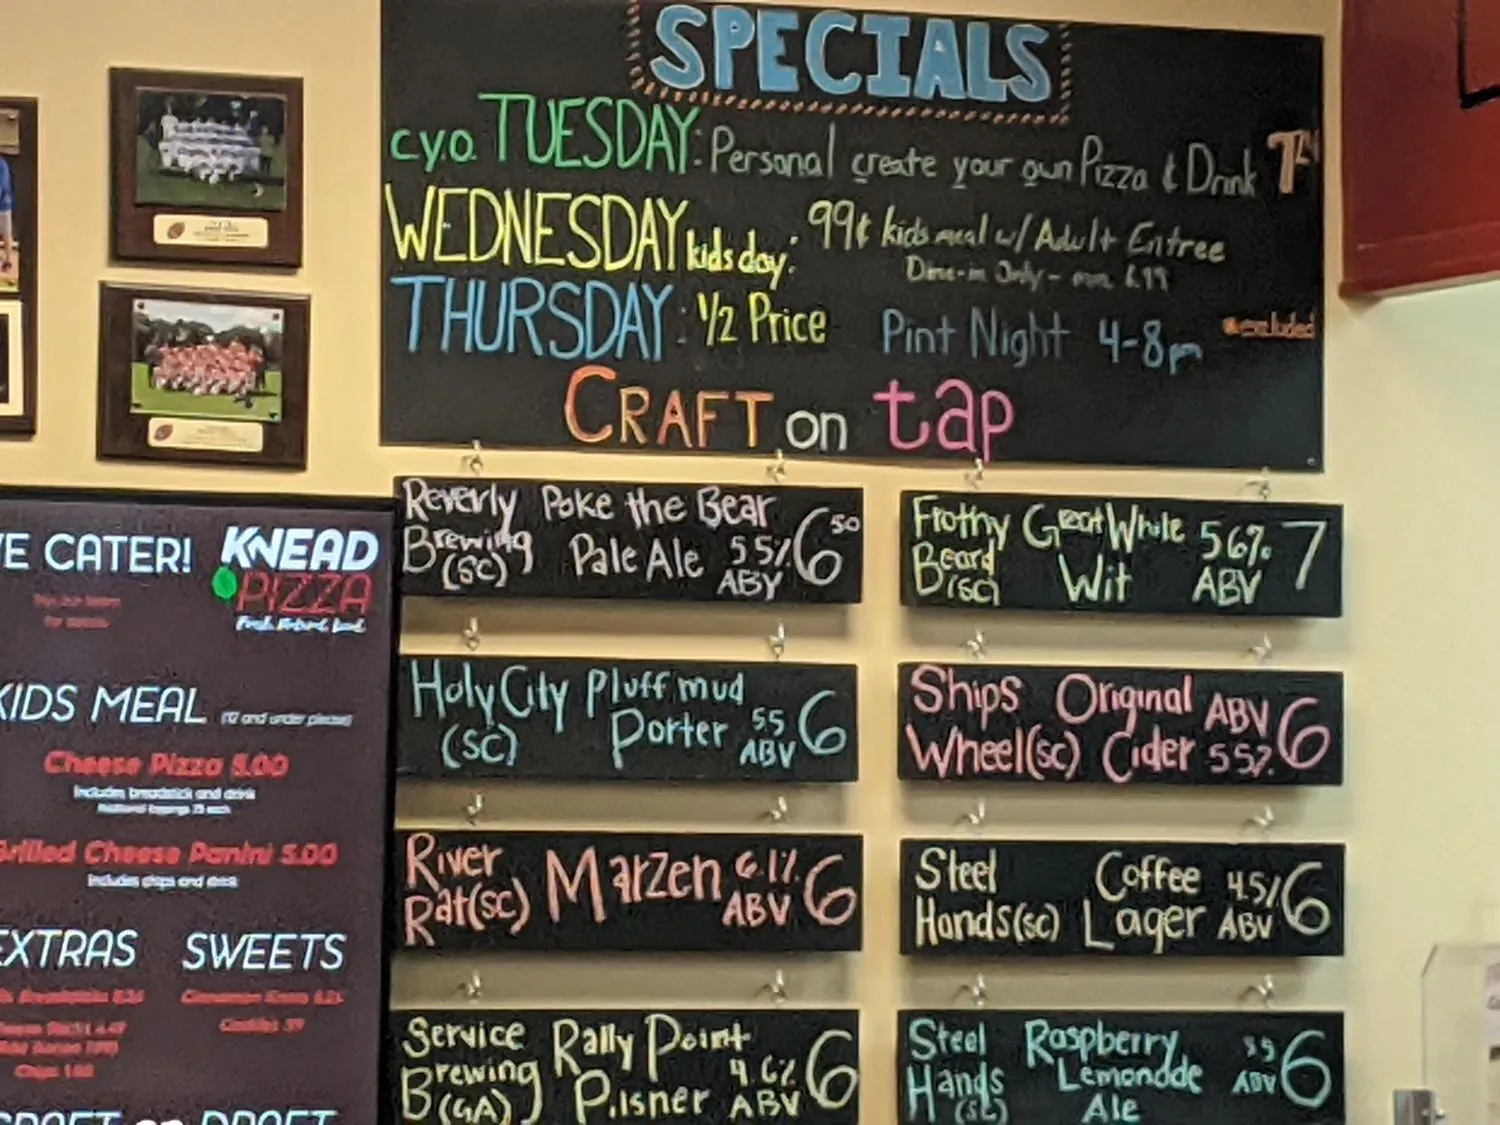 SPECIALS
c.y.o. TUESDAY: Personal create your own Pizza & Drink
WEDNESDAY kids day: 99¢ kids meal w/ Adult Entree
Dine-in Only -
THURSDAY: 1/2 Price Pint Night 4-8pm
excluded
CRAFT on tap
Reverly Poke the Bear 6 50
Brewing Pale Ale 5.5%
(SC) ABV
Frothy Great White 5.6% 7
Beard Wit ABV
(SC)
Holy City Pluff mud 6
(SC) Porter 5.5
ABV
Ships Original ABV 6
Wheel(SC) Cider 5.5%
River Marzen 6.1% 6
Rat(SC) ABV
Steel Coffee 4.5% 6
Hands(SC) Lager ABV
Service Rally Point 6
Brewing Pilsner 4.6%
(GA) ABV
Steel Raspberry 6
Hands Lemonade ABV
(SC) Ale
VE CATER!
KNEAD
PIZZA
KIDS MEAL (12 and under please)
Cheese Pizza 5.00
Includes breadstick and drink
Grilled Cheese Panini 5.00
Includes chips and drink
EXTRAS
SWEETS
CRAFT on DRAFT